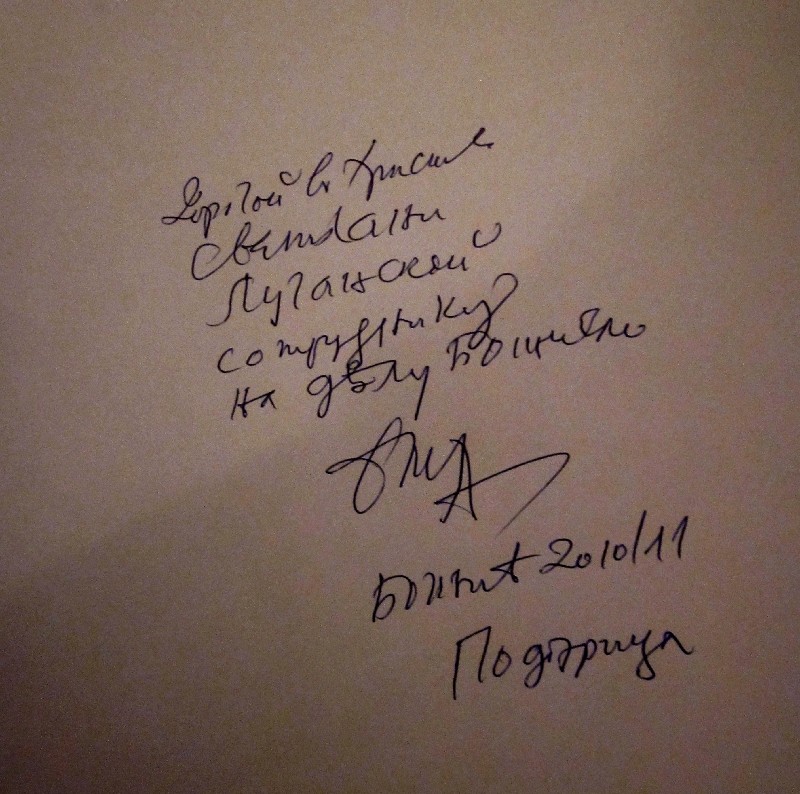 Дорогой в Христе
Светлани
Луганской
сотруднику
на дѣлу Божиемо
Божић 2010/11
Подгорица